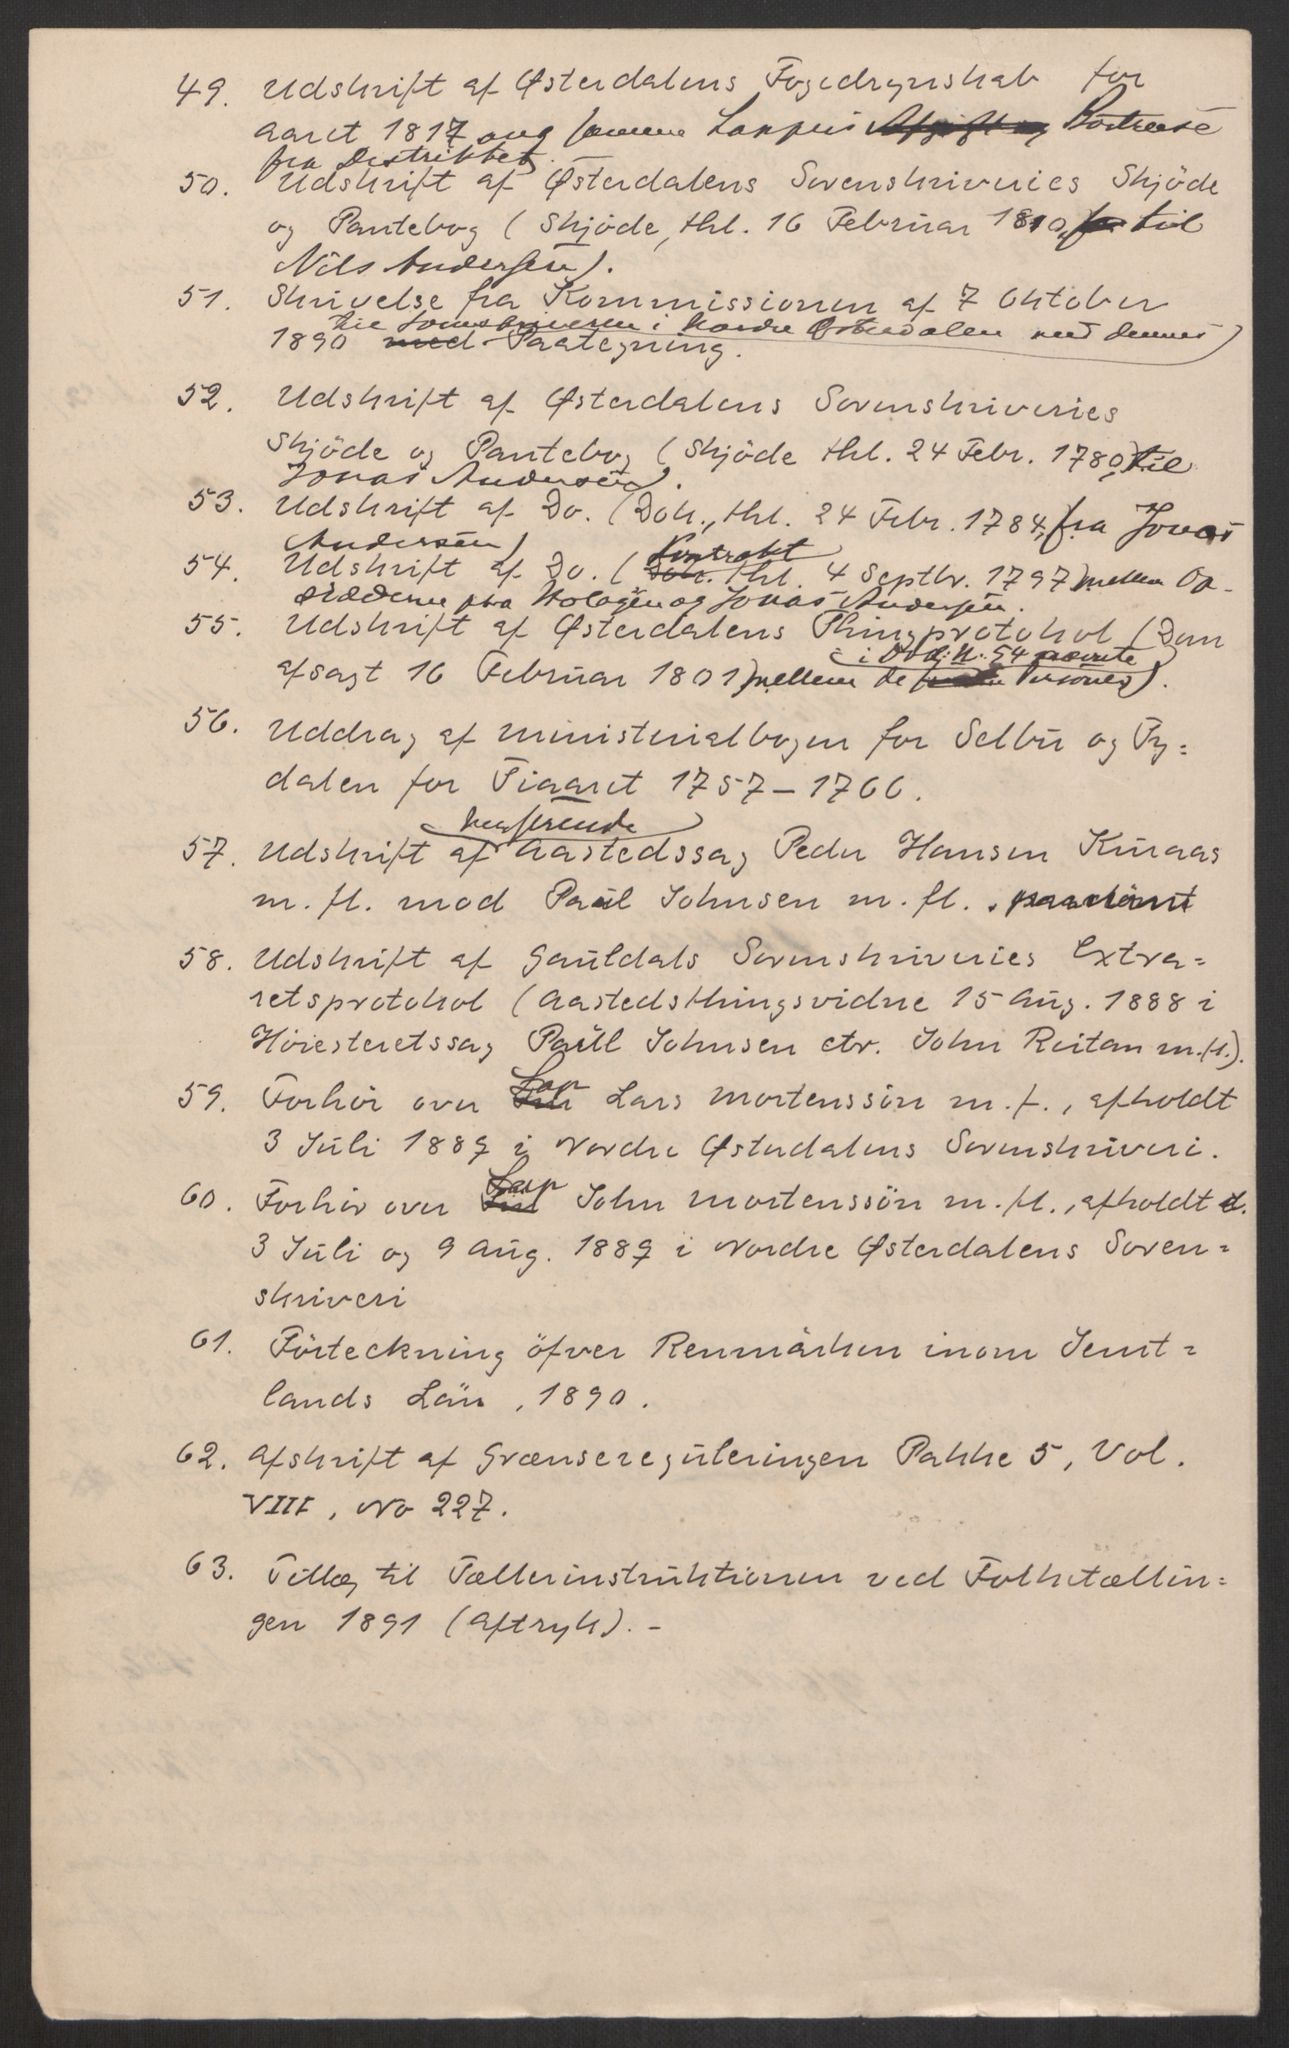 49. Udskrift af Østerdalens Fogedregnskab for
Aaret 1817 ang Lappers Afgift og Bortreise
fra Distriktet.
50. Udskrift af Østerdalens Sorenskriveries Skjöde
og Pantebog (Skjöde, thl. 16 Februar 1810, for til
Nils Andersen).
51. Skrivelse fra Kommissionen af 7 Oktober
til Sorenskriveren i Nordre Østerdalen med dennes
1890 med Paategning.
52. Udskrift af Østerdalens Sorenskriveries
Skjöde og Pantebog (Skjöde thl. 24 Febr. 1780) til
Jonas Andersen).
53. Udskrift af Do. (Dok., thl. 24 Febr. 1784, fra Jonas
Andersen)
Kontrakt
54. Udskrift af Do. (Dok. thl. 4 Septbr. 1797) mellem Op-
sidderne paa og Jonas Andersen.
55. Udskrift af Østerdalens Thingprotokol (Dom
i Dok. N. 54 nævnte
afsagt 16 Februar 1801) mellem de Personer).
56. Uddrag af Ministerialbogen for Selbu og Ty=
dalen for Tiaaret 1757-1766.
henförende
57. Udskrift af Aastedssag Peder Hansen Kuraas
m. fl. mod Paul Johnsen m. fl. . paaankt
58. Udskrift af Gauldals Sorenskriveries Extra=
retsprotokol (Aastedsthingsvidne 15 Aug. 1888 i
Höiesteretssag Paul Johnsen ctr. John Reitan m.fl.).
Lap
59. Forhör over Lars Mortenssön m. f., afholdt
3 Juli 1889 i Nordre Østerdalens Sorenskriveri.
Lap
60. Forhör over John Mortenssön m. fl., afholdt d.
3 Juli og 9 Aug. 1889 i Nordre Østerdalens Soren=
skriveri
61. Förteckning öfver Renmärken inom Jemt=
lands Län, 1890.
62. Afskrift af Grænsereguleringen Pakke 5, Vol.
VIII, No 227.
63. Tillæg til Tællerinstruktionen ved Folketællin=
gen 1891 (Aftryk). -